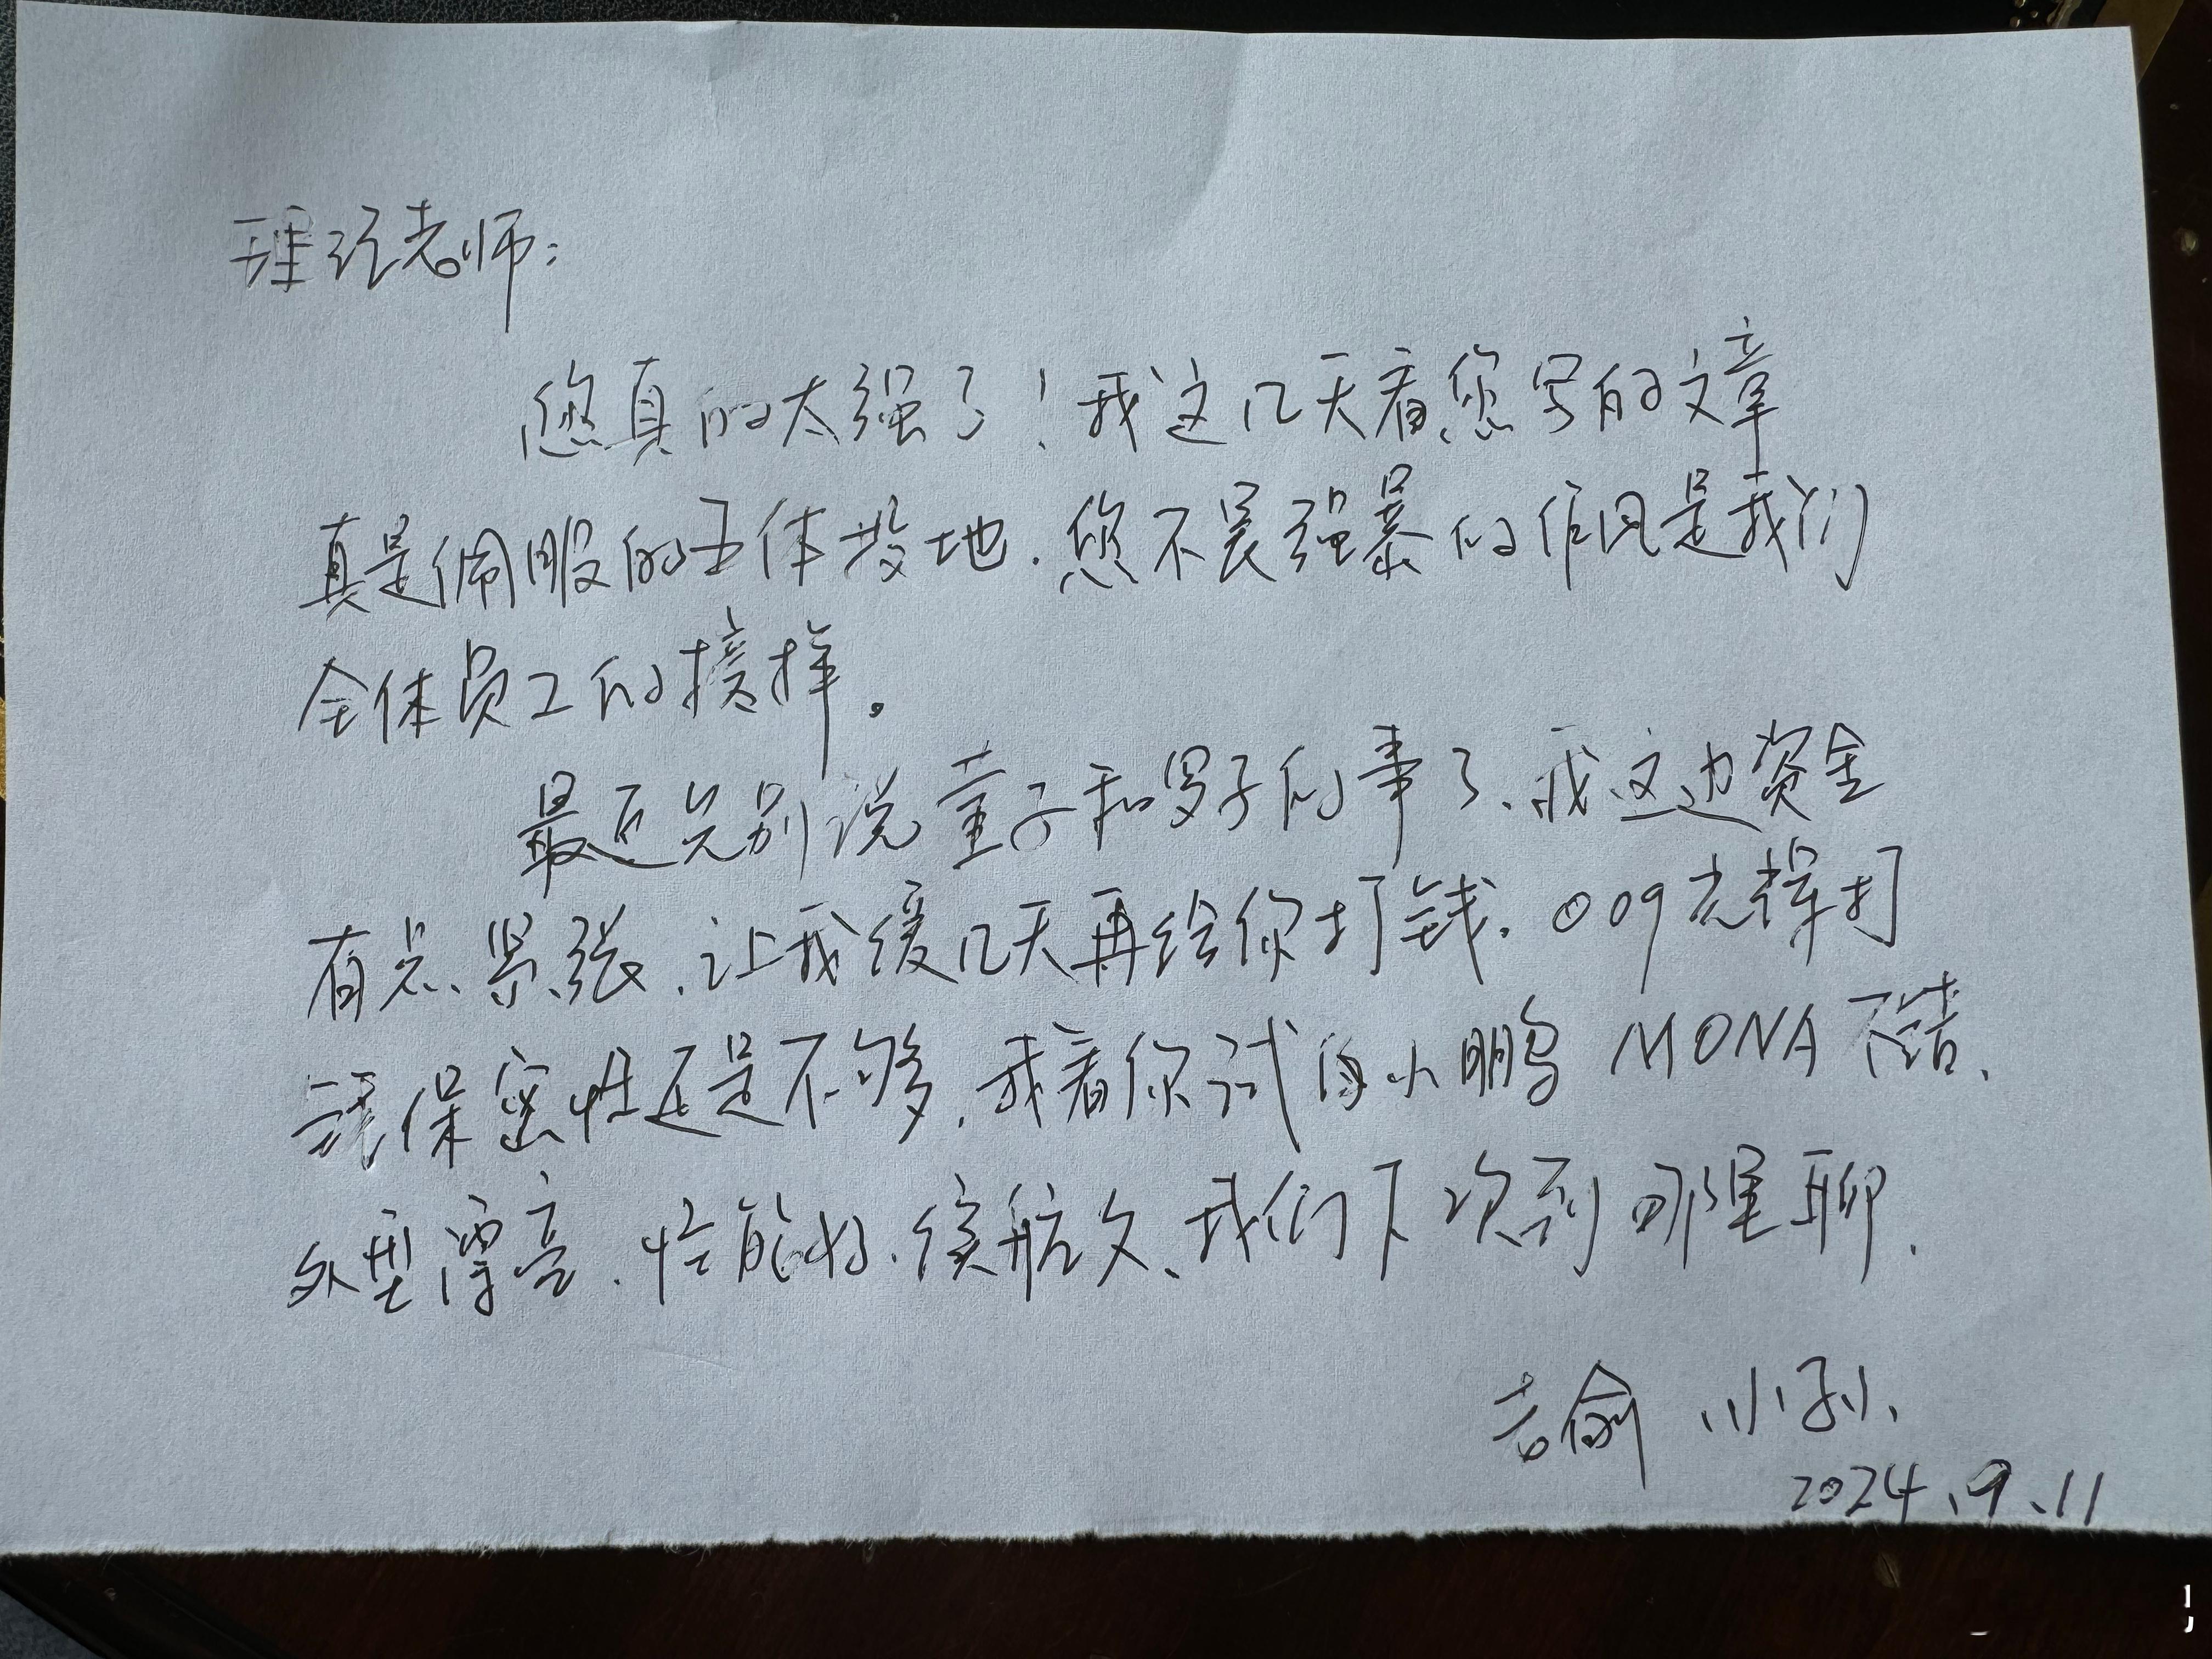 理记老师:
您真的太强了!我这几天看您写的文章
真是佩服的五体投地.您不畏强暴的作风是我们
全体员工的榜样。
最近先别说童子和罗子的事了、我这边资金
有点紧张.让我缓几天再给你打钱.009光辉打
电话保密性还是不够.我看你试的小鹏 MONA 不错、
外型漂亮.性能好.续航久、我们下次到哪里聊.
吉俞 小孙、
2024.9.11